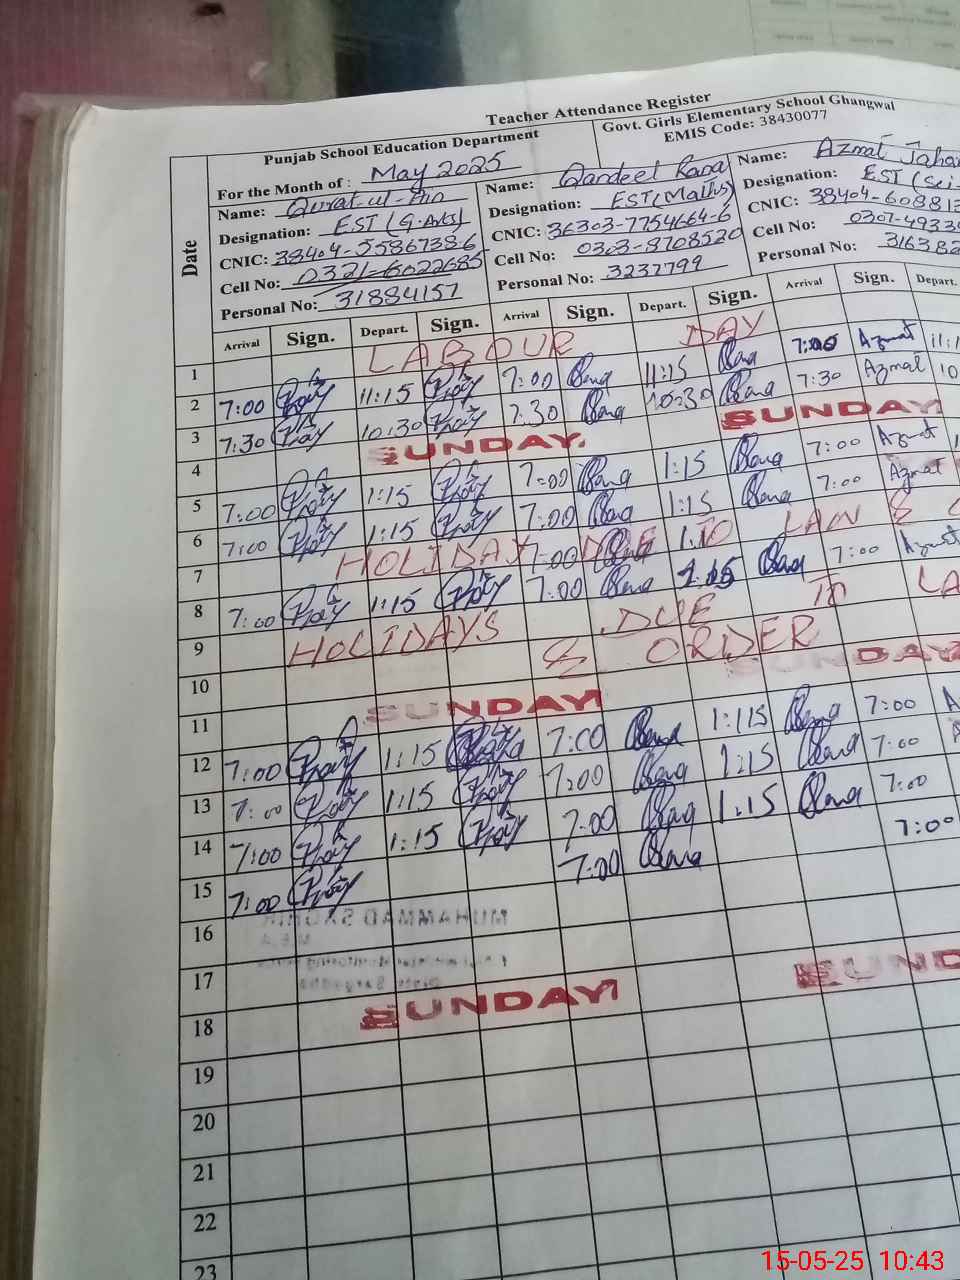 Teacher Attendance Register
Punjab School Education Department
Govt. Girls Elementary School Ghangwal
EMIS Code: 38430077
For the Month of : May 2025
Date
Name: Qurat-ul-Ain
Designation: EST (G.Arts)
CNIC: 38404-5586738-6
Cell No: 0321-6022685
Personal No: 31884157
Name: Qandeel Rana
Designation: EST(Maths)
CNIC: 36303-7754664-6
Cell No: 0303-8708520
Personal No: 3237799
Name: Azmat Jahan
Designation: EST (Sci-
CNIC: 38404-608813
Cell No: 0307-4933
Personal No: 316382
Arrival Sign. Depart. Sign. Arrival Sign. Depart. Sign. Arrival Sign. Depart.
1 LABOUR DAY
2 7:00 11:15 7:00 Rana 11:15 Rana 7:00 Azmat 11:1
3 7:30 10:30 7:30 Rana 10:30 Rana 7:30 Azmat 10
4 SUNDAY SUNDAY
5 7:00 1:15 7:00 Rana 1:15 Rana 7:00 Azmat
6 7:00 1:15 7:00 Rana 1:15 Rana 7:00 Azmat
7 HOLIDAY 7:00 DUE TO LAW &
8 7:00 1:15 7:00 Rana 1:15 Rana 7:00 Azmat
9 HOLIDAYS DUE TO LA
10 & ORDER
11 SUNDAY SUNDAY
12 7:00 1:15 7:00 Rana 1:15 Rana 7:00 A
13 7:00 1:15 7:00 Rana 1:15 Rana 7:00
14 7:00 1:15 7:00 Rana 1:15 Rana 7:00
15 7:00 7:00 Rana 7:00
16
MUHAMMAD SAGHIR
17
18 SUNDAY SUND
19
20
21
22
23
15-05-25 10:43